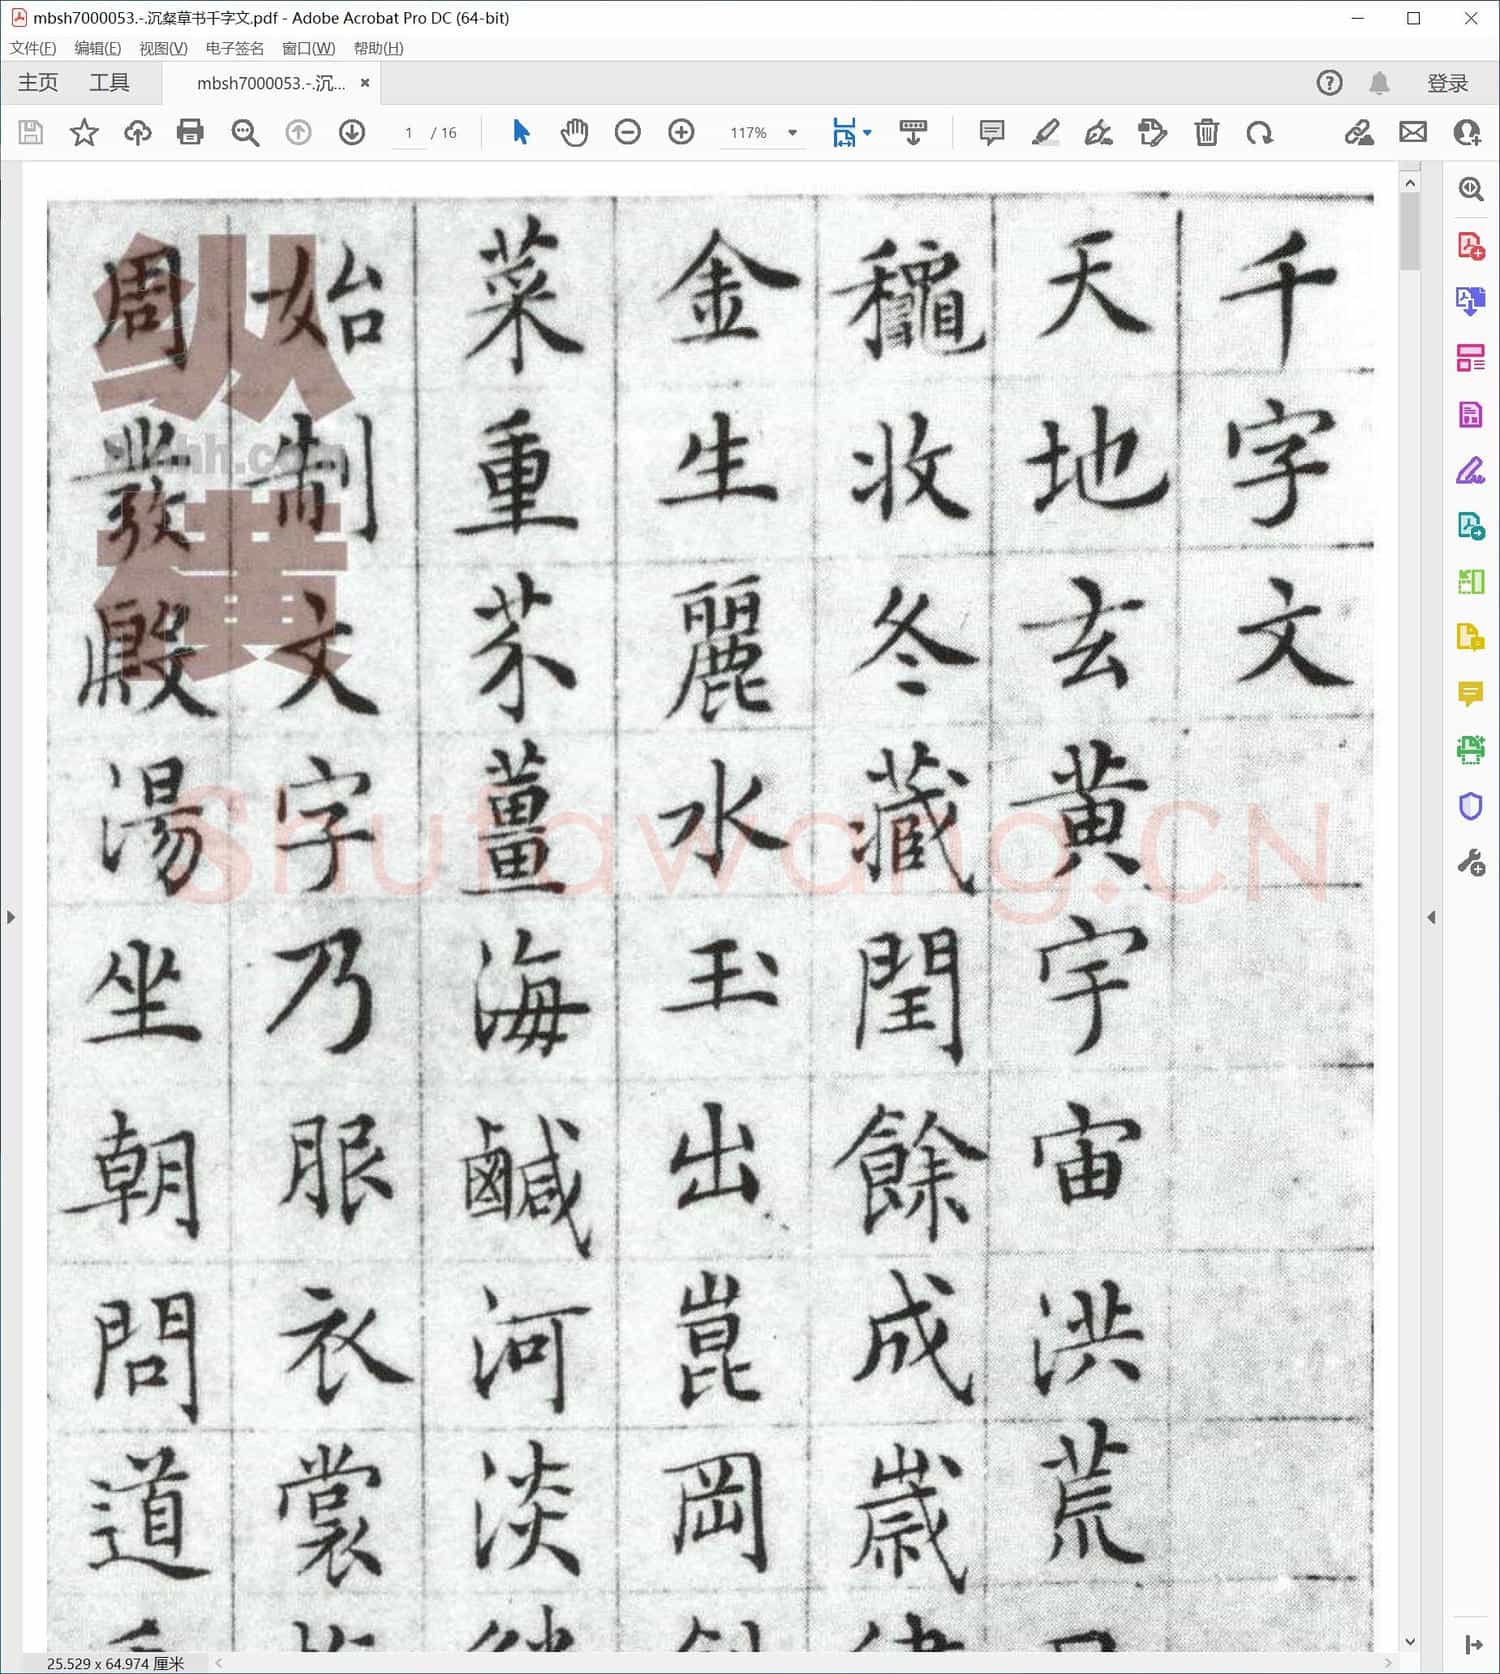 mbsh7000053.-.沉粲草书千字文.pdf - Adobe Acrobat Pro DC (64-bit)
文件(F) 编辑(E) 视图(V) 电子签名 窗口(W) 帮助(H)
主页 工具 mbsh7000053.-.沉... × 登录
1 / 16 117%
千字文
天地玄黄宇宙洪荒日
穐收冬藏閏餘成歲律
金生麗水玉出崑岡劍
菜重芥薑海鹹河淡鱗
始制文字乃服衣裳推
周發殷湯坐朝問道垂
纵横
Shufawang.CN
25.529 x 64.974 厘米